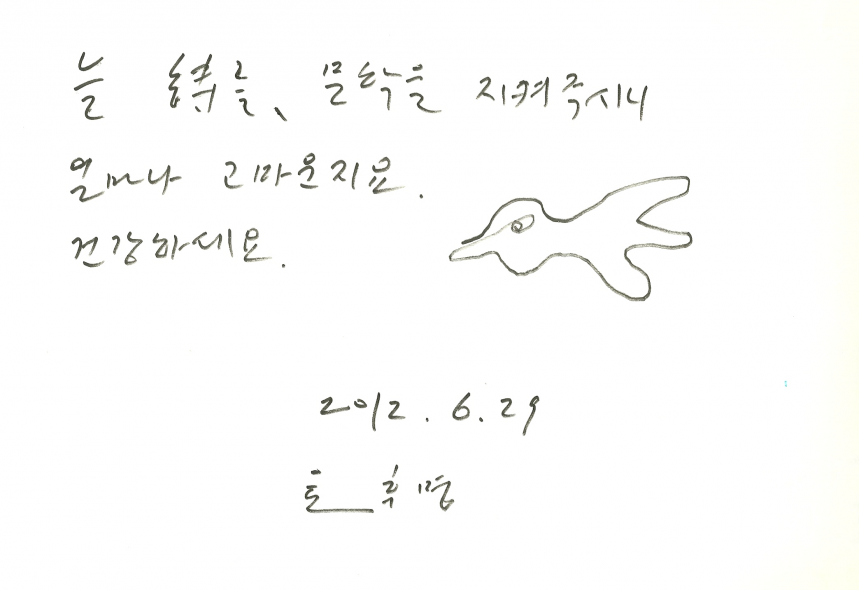 늘 문학을 지켜주시니
얼마나 고마운지요.
건강하세요.
2012. 6. 29
후명